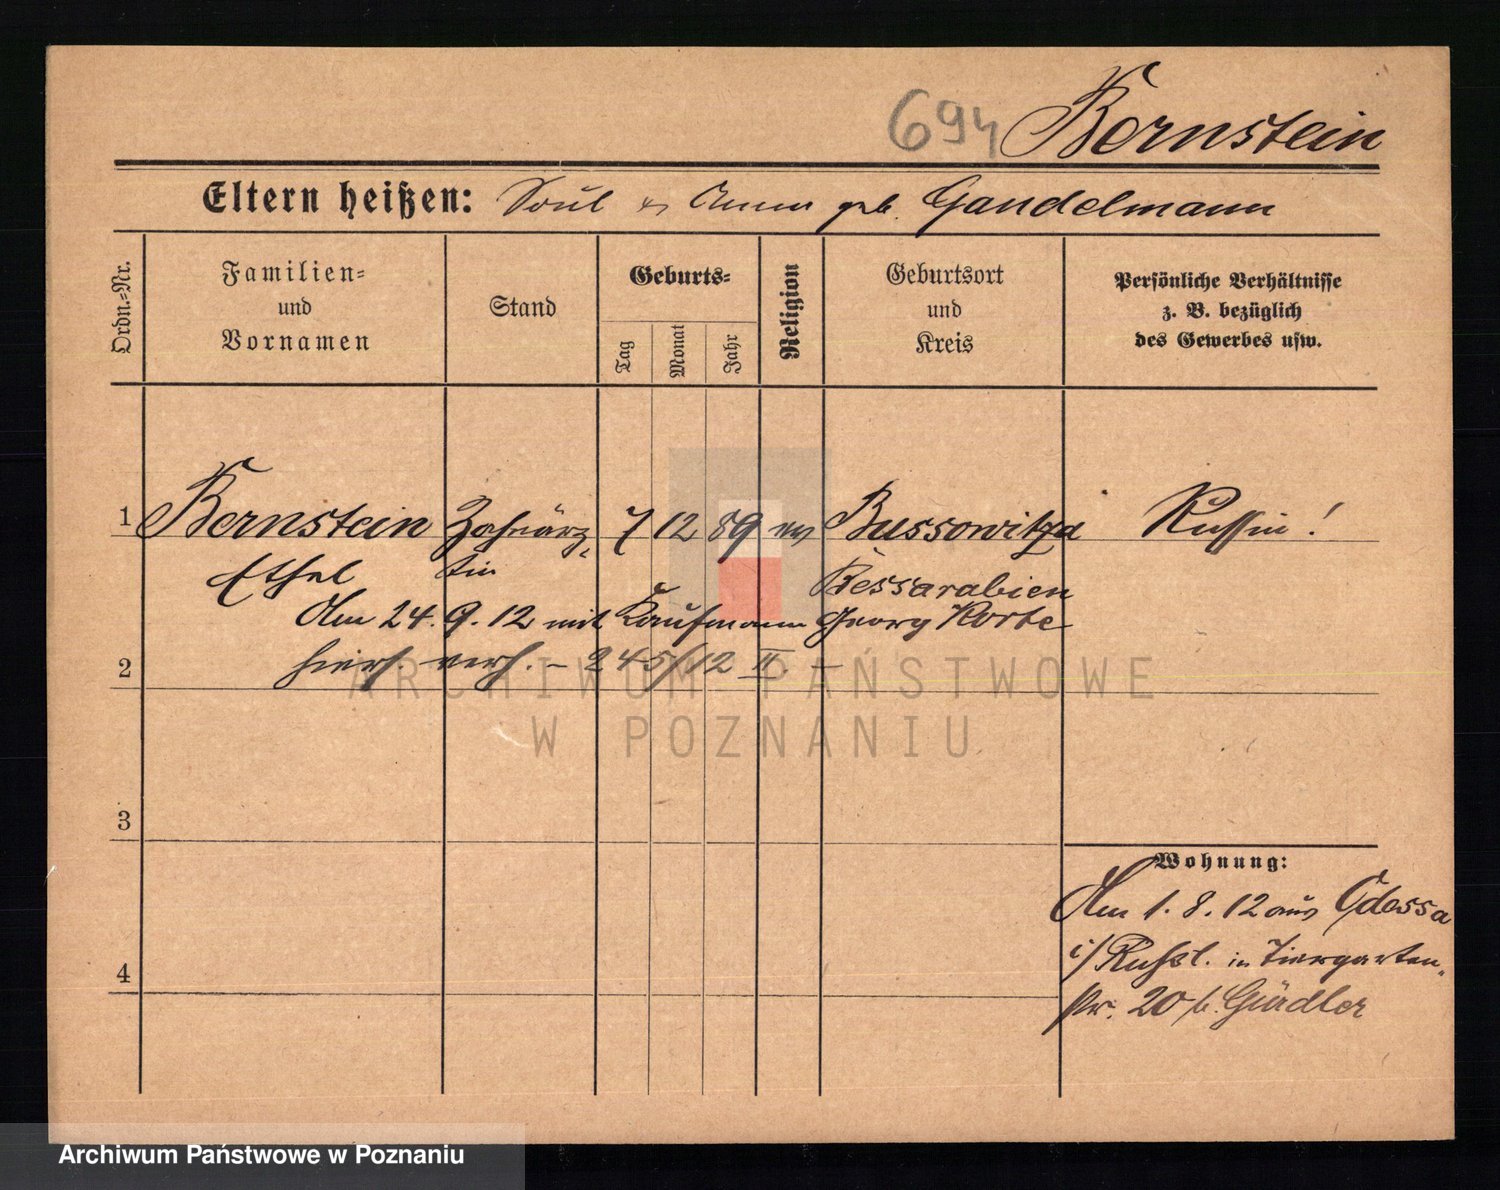 694 Bernstein
Eltern heißen: Saul u. Anna geb. Gandelmann
Ordn.-Nr.
Familien-
und
Vornamen
Stand
Geburts-
Tag
Monat
Jahr
Religion
Geburtsort
und
Kreis
Persönliche Verhältnisse
z. B. bezüglich
des Gewerbes usw.
1 Bernstein Zahnärz- 7 12 89 ev Bussowitza Russin!
Ethel tin Bessarabien
Am 24. 9. 12 mit Kaufmann Georg Korte
2 hierh. verh. - 245/12 II. -
ARCHIWUM PAŃSTWOWE
W POZNANIU
3
Wohnung:
Am 1. 8. 12 aus Odessa
i/ Russl. in Tiergarten-
4
str. 20 b. Gürdler
Archiwum Państwowe w Poznaniu